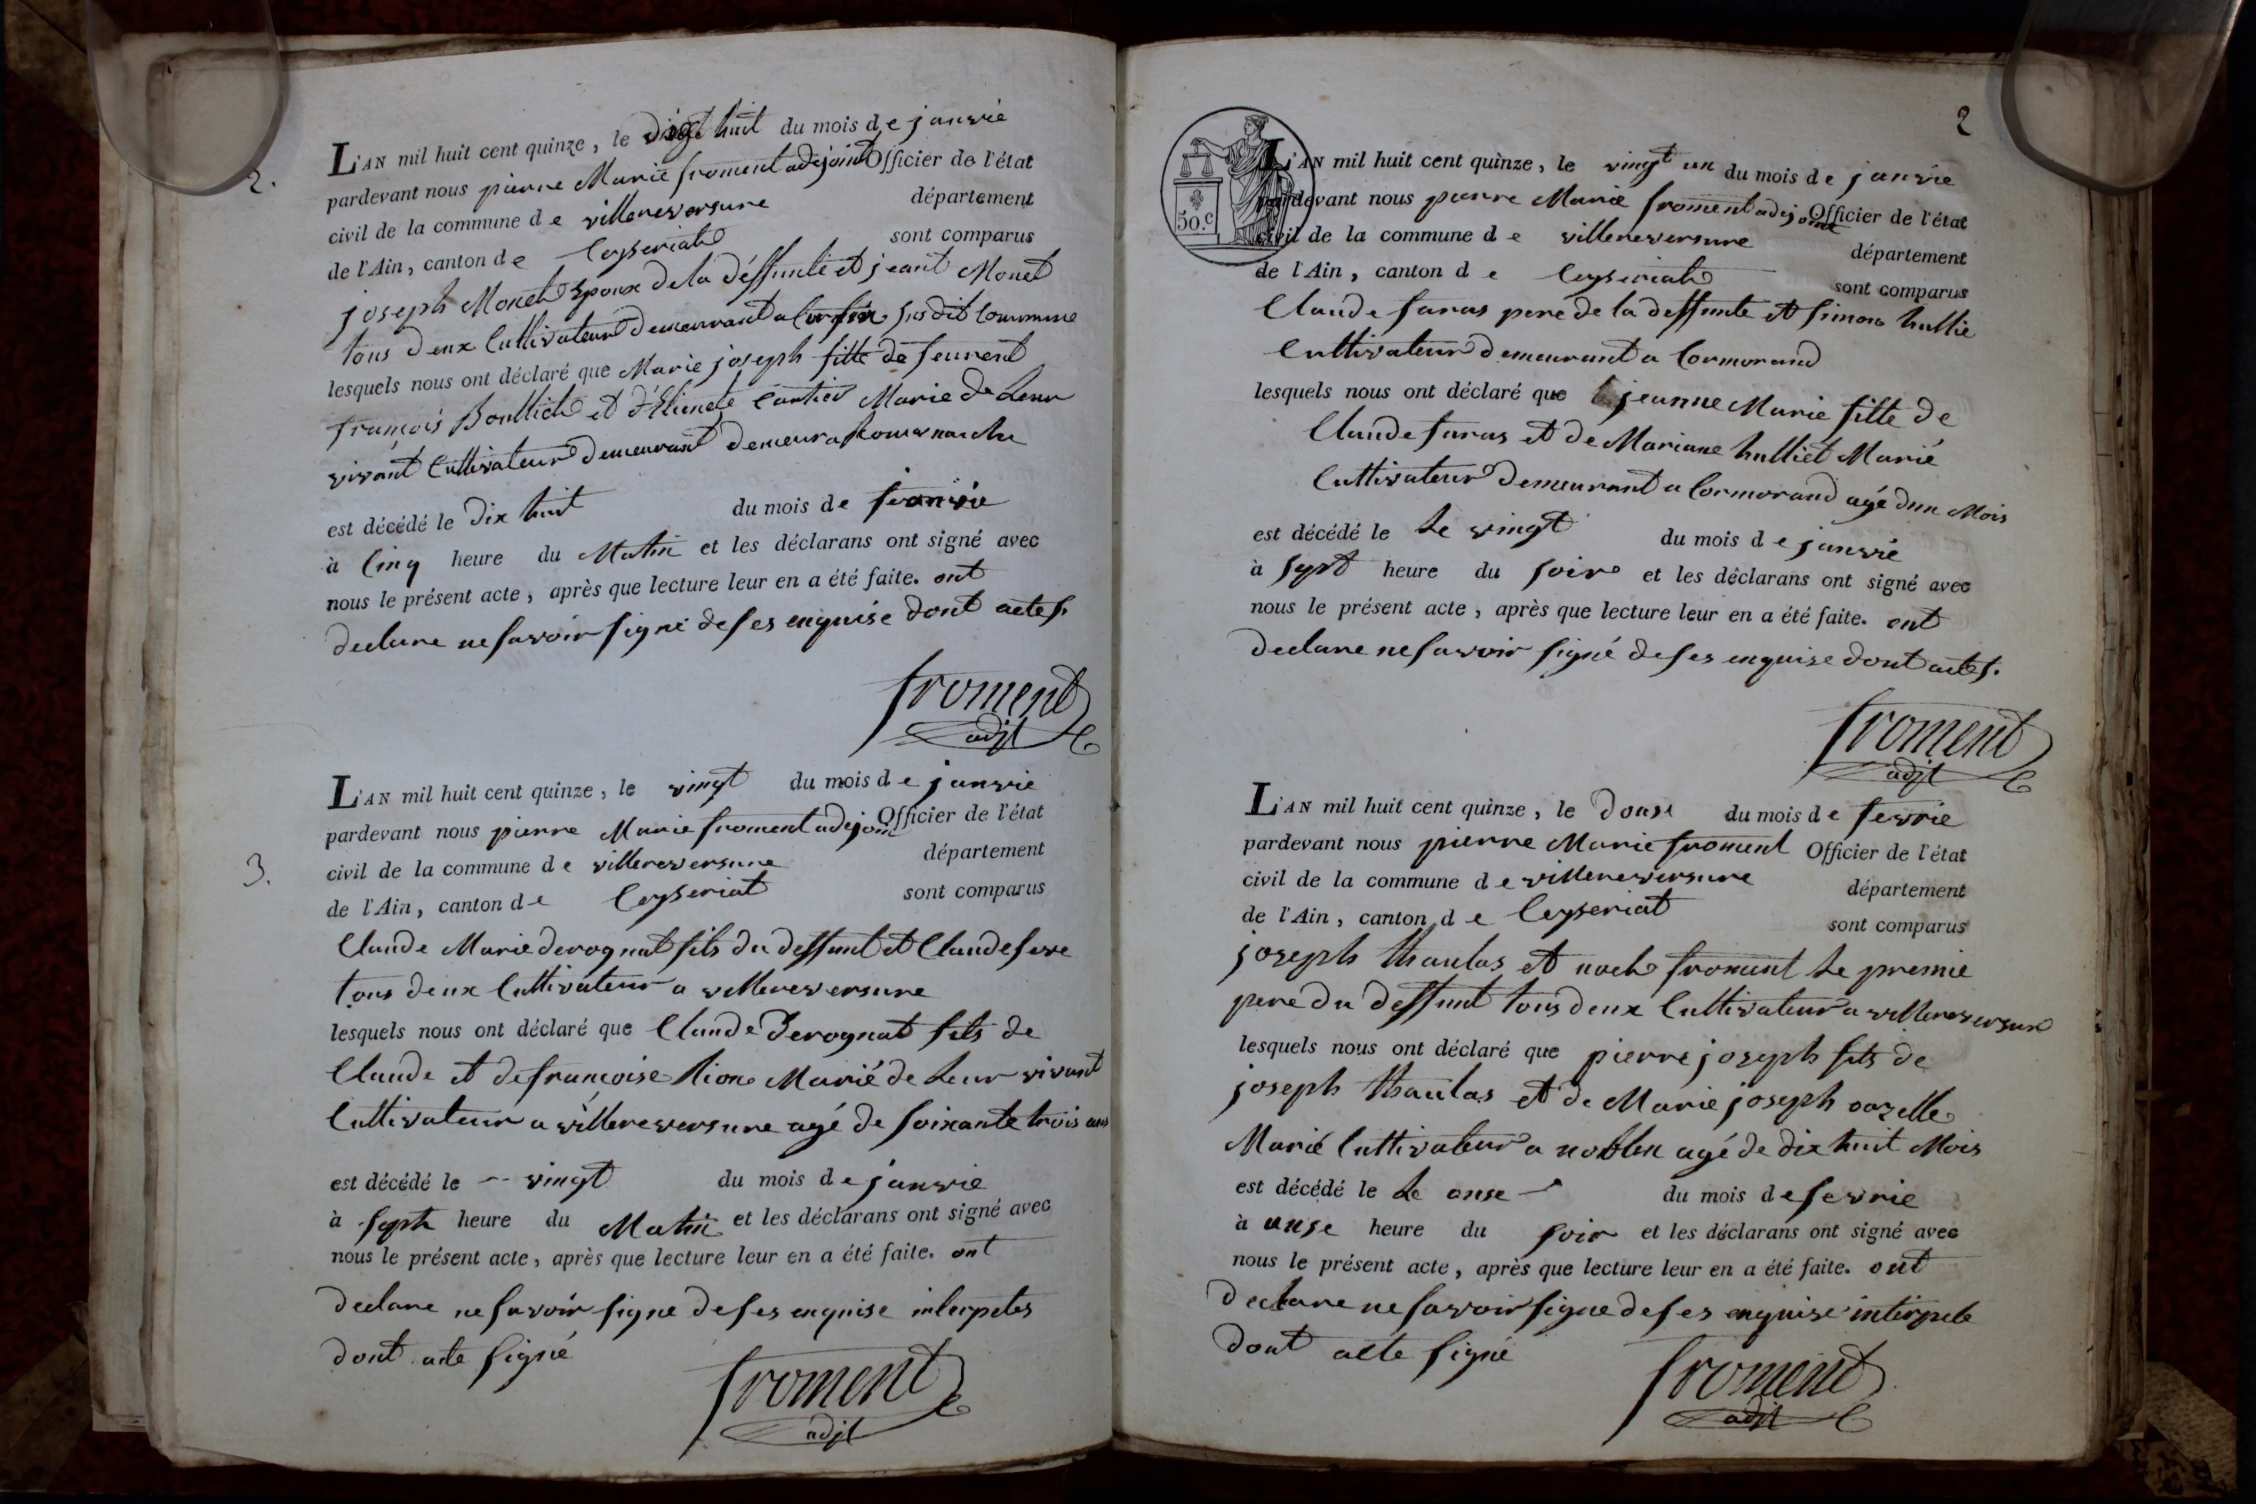 2.
L'AN mil huit cent quinze, le huit du mois de janvie
pardevant nous pierre Marie froment adejoint Officier de l'état
civil de la commune de villereversure département
de l'Ain, canton de Ceyseriat sont comparus
joseph Monet Epoux de la déffunte et jeant Monet
tous deux Cultivateur demeurant a susdit Commune
lesquels nous ont déclaré que Marie joseph fille de feunent
françois Boullict et d'Etienete Cartier Marie de Leur
vivant Cultivateur demeurant demeura
est décédé le dix huit du mois de janvie
à Cinq heure du Matin et les déclarans ont signé avec
nous le présent acte, après que lecture leur en a été faite. ont
declare ne savoir signé de ses enquise dont acte s.
froment
adjt
3.
L'AN mil huit cent quinze, le vingt du mois de janvie
pardevant nous pierre Marie froment adejoin Officier de l'état
civil de la commune de villereversure département
de l'Ain, canton de Ceyseriat sont comparus
Claude Marie derognat fils du deffunt et Claude fere
tous deux Cultivateur a villereversure
lesquels nous ont déclaré que Claude Derognat fils de
Claude et de françoise Marié de Leur vivant
Cultivateur a villereversure agé de soixante trois ans
est décédé le -- vingt du mois de janvie
à sept heure du Matin et les déclarans ont signé avec
nous le présent acte, après que lecture leur en a été faite. ont
declare ne savoir signe de ses enquise interpetes
dont acte signé
froment
adjt
2
50.c
L'AN mil huit cent quinze, le vingt un du mois de janvie
pardevant nous pierre Marie froment adejoint Officier de l'état
civil de la commune de villereversure département
de l'Ain, canton de Ceyseriat sont comparus
Claude faras pere de la deffunte et simon hullie
Cultivateur demeurant a Cormorand
lesquels nous ont déclaré que jeanne Marie fille de
Claude faras et de Mariane hulliet Marié
Cultivateur demeurant a Cormorand agé d'un Mois
est décédé le Le vingt du mois de janvie
à sept heure du soire et les déclarans ont signé avec
nous le présent acte, après que lecture leur en a été faite. ont
declare ne savoir signé de ses enquise dont acte s.
froment
adjt
L'AN mil huit cent quinze, le douse du mois de fevrie
pardevant nous pierre Marie froment Officier de l'état
civil de la commune de villereversure département
de l'Ain, canton de Ceyseriat sont comparus
joseph thaulas et noel froment Le premie
pere du deffunt tous deux Cultivateur a villereversure
lesquels nous ont déclaré que pierre joseph fils de
joseph thaulas et de Marie joseph oozelle
Marié Cultivateur a noblen agé de dix huit Mois
est décédé le Le onse du mois de fevrie
à onse heure du soir et les déclarans ont signé avec
nous le présent acte, après que lecture leur en a été faite. ont
declare ne savoir signe de ses enquise interpele
dont acte signé
froment
adjt